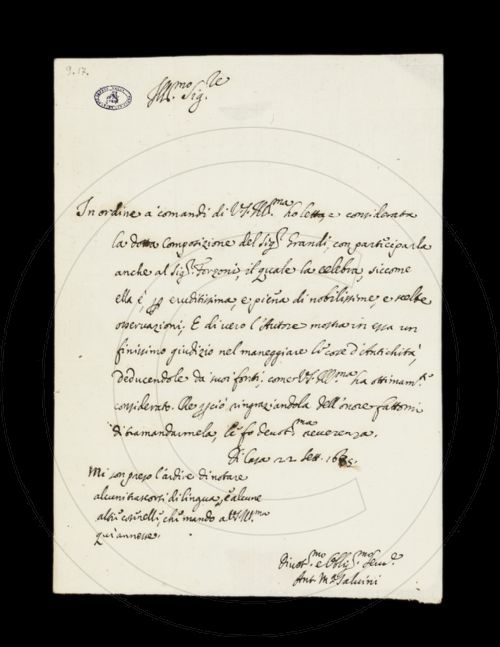 9.17.
Ill.mo Sig.re
In ordine a' comandi di V.S. Ill.ma ho letta e considerata
la dotta Composizione del Sig.r Grandi, con participarla
anche al Sig.r Forzoni, il quale la celebra, siccome
ella è, p eruditissima, e piena di nobilissime, e scelte
osservazioni; E di vero l'Autore mostra in essa un
finissimo giudizio nel maneggiare le cose d'Antichità,
deducendole da' suoi fonti, come V.S. Ill.ma ha ottimam.te
considerato. ringraziandola dell'onore fattomi
di tramandarmela, le fo devot.ma reverenza.
Di Casa 22 Sett.
Mi son preso l'ardire di notare
alcuni trascorsi di lingua, e alcune
altre che mando a V.S. Ill.ma
qui annesse.
Divot.mo e Obblig.mo Serv.e
Ant. M.a Salvini